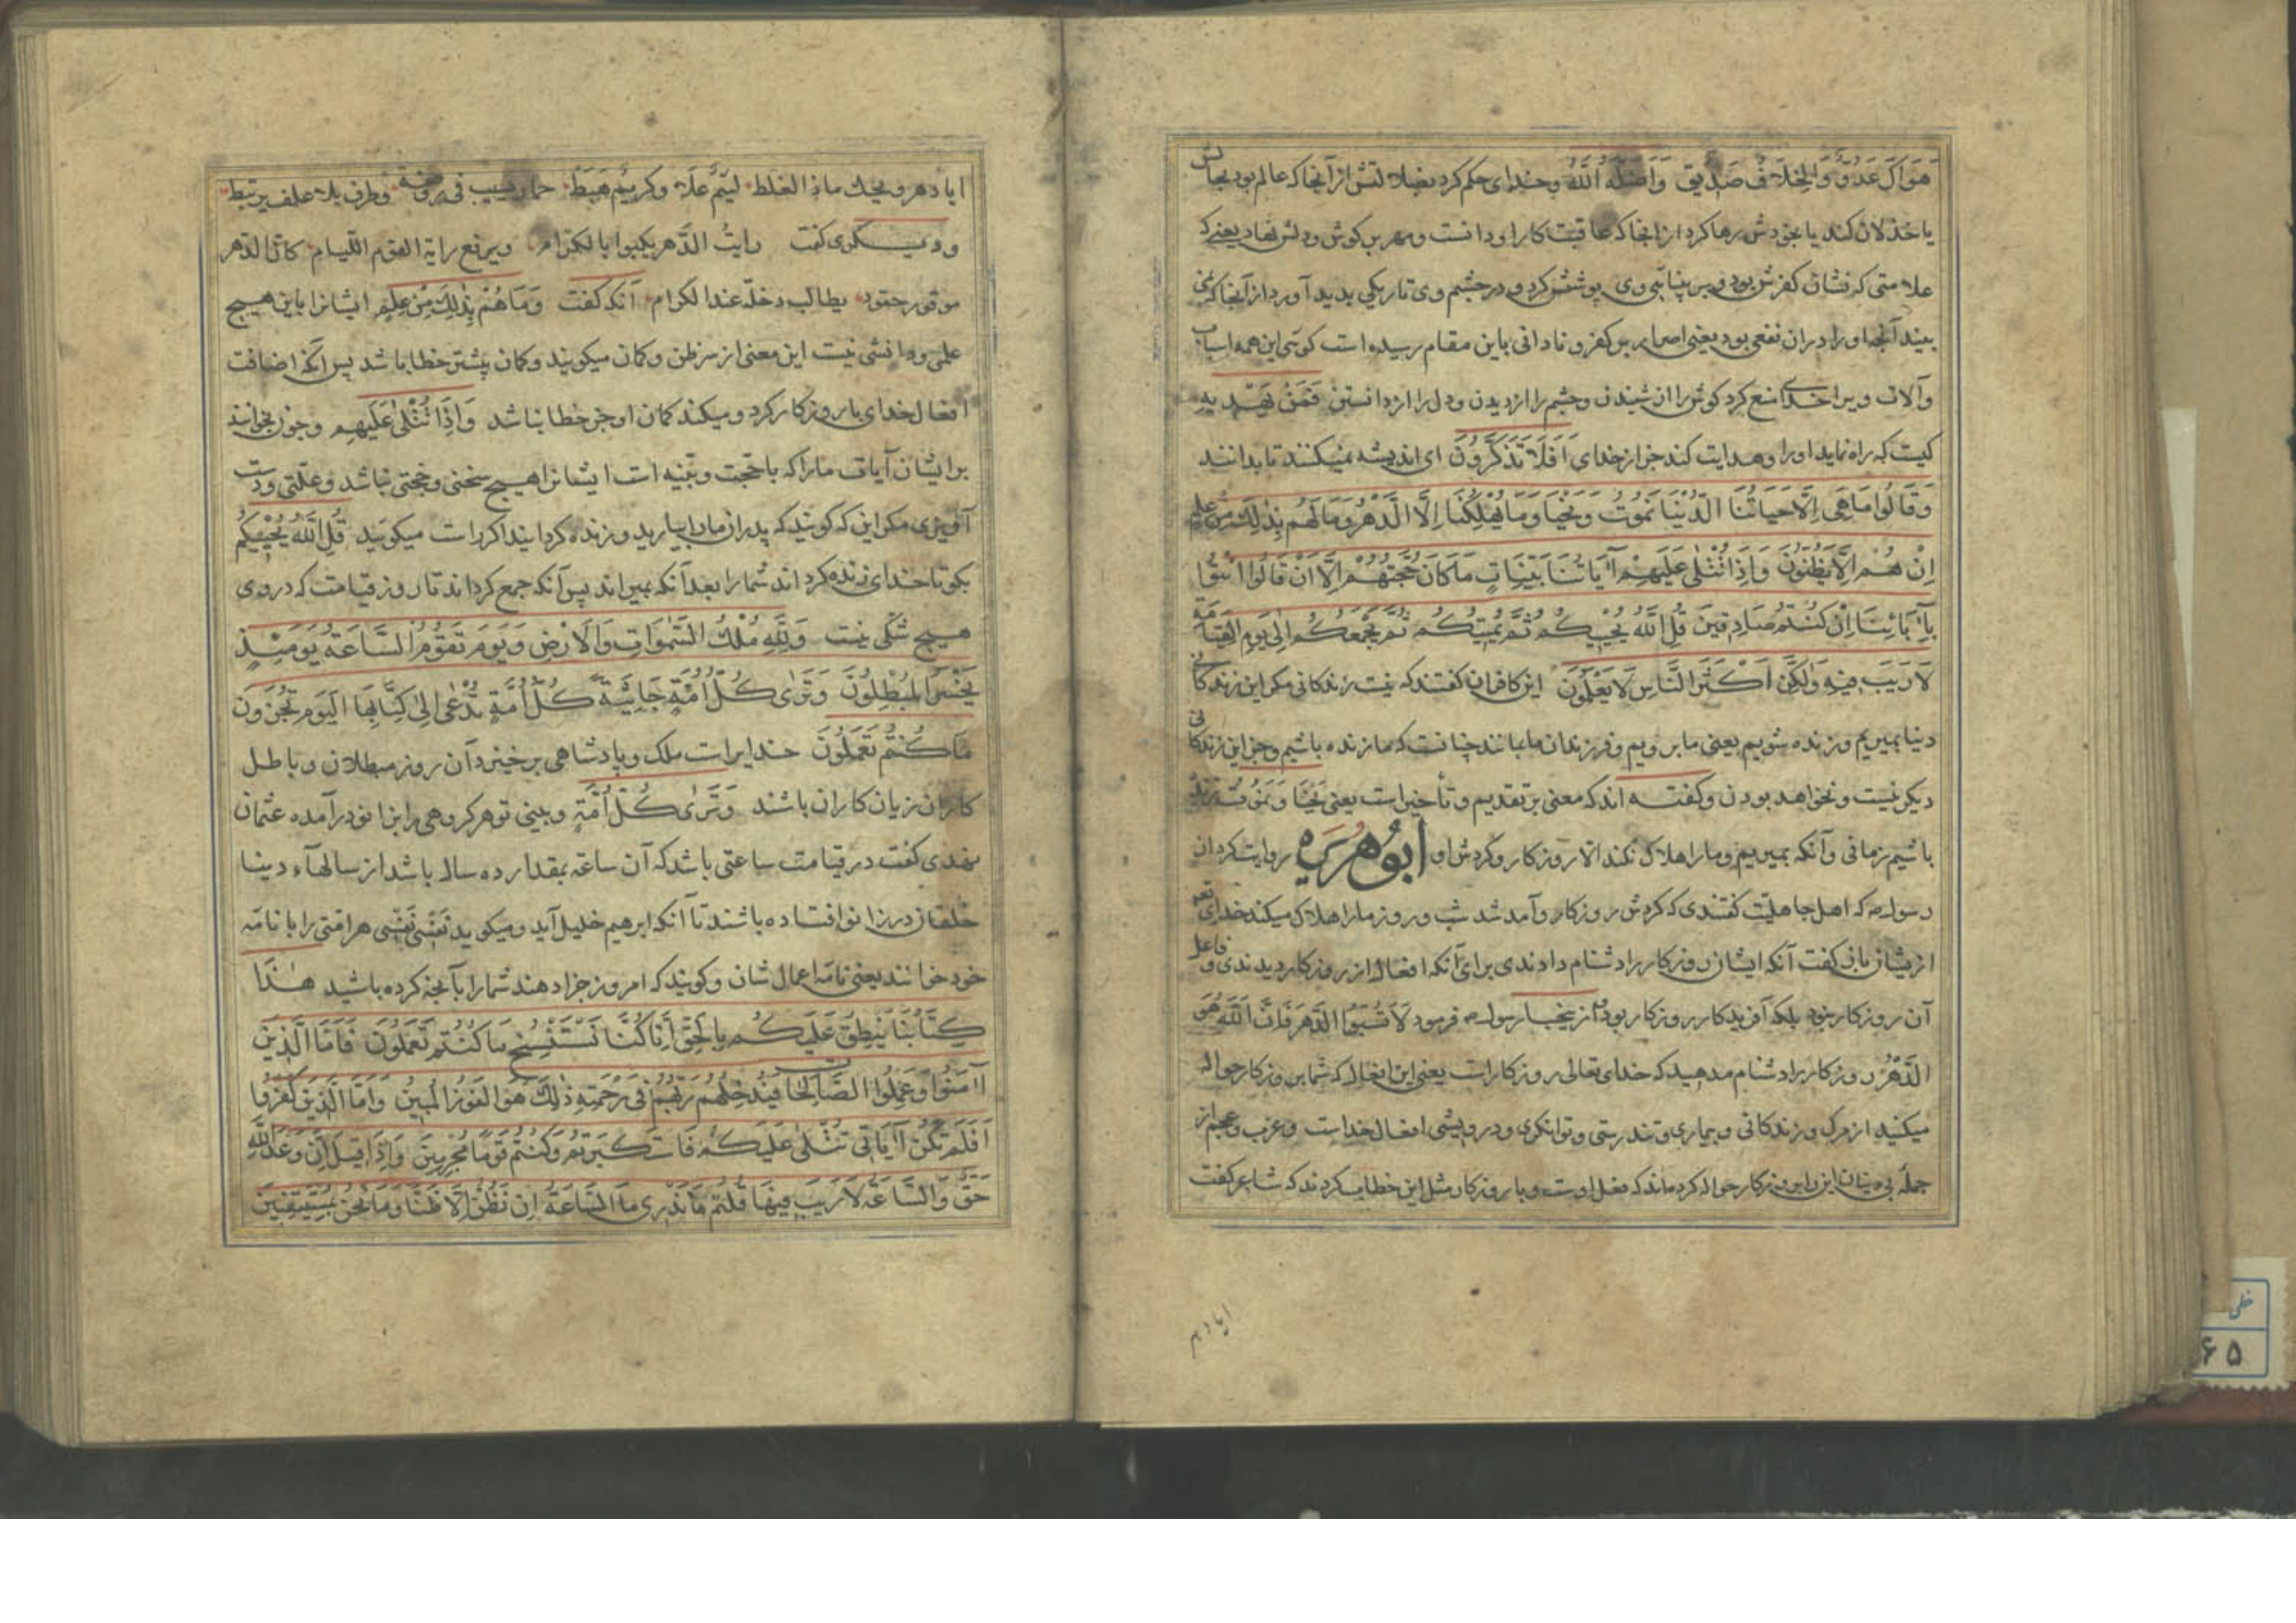 هَوَاكَ عَدُوٌّ وَالْخِلَافُ صَدِیقٌ وَاَضَلَّهُ اللّٰهُ وخدای حکم کرد بضلالتش از آنجا که عالم بود بحالش
یا خذلان کند یا بخودش رها کرد از انجا که عاقبت کار او دانست ومهر بر کوش ودلش نهاد یعنی که
علامتی که نشان کفرش بود وبر بینائی وی پوشش کرد ودر چشم وی تاریکی بدید آورد از آنجا که نمی
بیند آنچه او را دران نفعی بود یعنی اصرار بر کفر و نادانی باین مقام رسیده است کوئی این همه اسباب
وآلات ویرا خدای منع کرد کوش را از شنیدن وچشم را از دیدن ودل را از دانستن فَمَنْ یَهْدِیهِ
کیست که راه نماید او را وهدایت کند جز از خدای اَفَلَا تَذَكَّرُونَ ای اندیشه نمیکنند تا بدانند
وَقَالُوا مَا هِیَ اِلَّا حَیَاتُنَا الدُّنْیَا نَمُوتُ وَنَحْیَا وَمَا یُهْلِكُنَا اِلَّا الدَّهْرُ وَمَا لَهُم بِذٰلِكَ مِنْ عِلْمٍ
اِنْ هُمْ اِلَّا یَظُنُّونَ وَاِذَا تُتْلٰی عَلَیْهِمْ آیَاتُنَا بَیِّنَاتٍ مَا كَانَ حُجَّتَهُمْ اِلَّا اَنْ قَالُوا ائْتُوا
بِآبَائِنَا اِنْ كُنْتُمْ صَادِقِینَ قُلِ اللّٰهُ یُحْیِیكُمْ ثُمَّ یُمِیتُكُمْ ثُمَّ یَجْمَعُكُمْ اِلٰی یَوْمِ الْقِیٰمَةِ
لَا رَیْبَ فِیهِ وَلٰكِنَّ اَكْثَرَ النَّاسِ لَا یَعْلَمُونَ این کافران کفتند که نیست زندکانی مکر این زندکانی
دنیا بمیریم وزنده شویم یعنی ما برویم وفرزندان ما بمانند چنانست که ما زنده باشیم وجز این زندکانی
دیکر نیست ونخواهد بودن وکفته اند که معنی بر تقدیم وتأخیر است یعنی نَحْیَا وَنَمُوتُ زنده
باشیم زمانی وآنکه بمیریم وما را هلاک نکند الا روزکار وکردش او ابُوهُرَیرَه روایت کرد از
رسول ص که اهل جاهلیت کفتندی که کردش روزکار وآمد شد شب وروز ما را هلاک میکند خدای تعه
ازیشان باز کفت آنکه ایشان روزکار را دشنام دادندی برای آنکه افعال از روزکار دیدندی وفاعل
آن روزکار نبود بلکه آفریدکار روزکار بود از اینجا رسول ص فرمود لَا تَسُبُّوا الدَّهْرَ فَاِنَّ اللّٰهَ هُوَ
الدَّهْرُ روزکار را دشنام مدهید که خدای تعالی روزکار است یعنی این افعال که شما بر روزکار حواله
میکنید از مرک وزندکانی وبیماری وتندرستی وتوانکری ودرویشی افعال خداست وعرب وعجم از
جمله بی دینان این را بر روزکار حواله کرده اند که فعل اوست وبا روزکار مثل این خطاب کردند که شاعر کفت
ایا دهر
ایا دهر ویحك ماذا الغلط لَئِیمٌ عَلَا وكریمٌ هَبَطْ حمار یسیب فی روضة وطرف بلا علف یرتبط
ودیکری کفت رایتُ الدَّهر یکبوا بالکرام ویرفع رایة القوم اللّیام کانّ الدهر
موتور حقود یطالب دخله عند الکرام آنکه کفت وَمَا هُمْ بِذٰلِكَ مِنْ عِلْمٍ ایشانرا باین هیچ
علمی ودانشی نیست این معنی از سر ظن وکمان میکویند وکمان بیشتر خطا باشد پس آنکه اضافت
افعال خدای با روزکار کرد ومیکند کمان او جز خطا نباشد وَاِذَا تُتْلٰی عَلَیْهِم وچون بخوانند
بر ایشان آیات ما را که با حجت وبینه است ایشانرا هیچ سخنی وحجتی نباشد وعلتی ودست
آویزی مکر این که کویند که پدران ما را بیارید وزنده کردانید اکر راست میکویید قُلِ اللّٰهُ یُحْیِیكُمْ
بکو تا خدای زنده کرداند شما را بعد آنکه بمیراند پس آنکه جمع کرداند تا روز قیامت که در وی
هیچ شکی نیست وَلِلّٰهِ مُلْكُ السَّمٰوَاتِ وَالْاَرْضِ وَیَوْمَ تَقُومُ السَّاعَةُ یَوْمَئِذٍ
یَخْسَرُ الْمُبْطِلُونَ وَتَرٰی كُلَّ اُمَّةٍ جَاثِیَةً كُلُّ اُمَّةٍ تُدْعٰی اِلٰی كِتَابِهَا الْیَوْمَ تُجْزَوْنَ
مَا كُنْتُمْ تَعْمَلُونَ خدایراست ملک وپادشاهی برخیزد آن روز مبطلان وباطل
کاران زیان کاران باشند وَتَرٰی كُلَّ اُمَّةٍ وبینی تو هر کروهی را بزانو در آمده عثمان
نهدی کفت در قیامت ساعتی باشد که آن ساعه بمقدار ده سال باشد از سالهآء دنیا
خلقان در زانو افتاده باشند تا آنکه ابرهیم خلیل آید ومیکوید نَفْسی نَفْسی هر امتی را با نامه
خود خوانند یعنی نامه اعمال شان وکویند که امروز جزا دهند شما را بآنچه کرده باشید هٰذَا
كِتَابُنَا یَنْطِقُ عَلَیْكُمْ بِالْحَقِّ اِنَّا كُنَّا نَسْتَنْسِخُ مَا كُنْتُمْ تَعْمَلُونَ فَاَمَّا الَّذِینَ
آمَنُوا وَعَمِلُوا الصَّالِحَاتِ فَیُدْخِلُهُمْ رَبُّهُمْ فِی رَحْمَتِهِ ذٰلِكَ هُوَ الْفَوْزُ الْمُبِینُ وَاَمَّا الَّذِینَ كَفَرُوا
اَفَلَمْ تَكُنْ آیَاتِی تُتْلٰی عَلَیْكُمْ فَاسْتَكْبَرْتُمْ وَكُنْتُمْ قَوْمًا مُجْرِمِینَ وَاِذَا قِیلَ اِنَّ وَعْدَ اللّٰهِ
حَقٌّ وَالسَّاعَةُ لَا رَیْبَ فِیهَا قُلْتُمْ مَا نَدْرِی مَا السَّاعَةُ اِنْ نَظُنُّ اِلَّا ظَنًّا وَمَا نَحْنُ بِمُسْتَیْقِنِینَ
خطی
۶۵